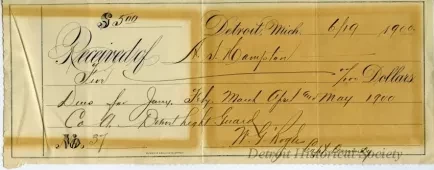 $ 5.00 Detroit, Mich. 6/19 1900
Received of H. S. Hampton
Five /100 Dollars
Dues for Jany. Feby. March April and May 1900
Co A. Detroit Light Guard
No. 37 W. G. Rogers
Capt. Com'dg
Detroit Historical Society